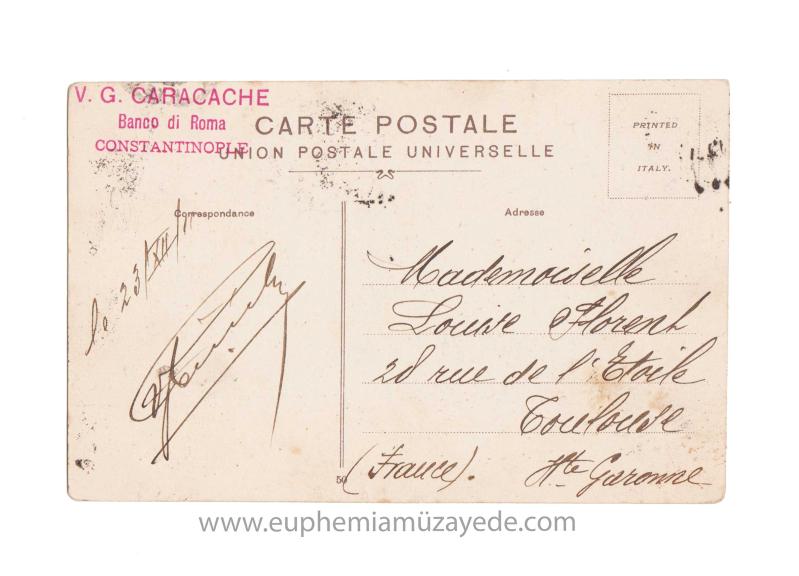 V. G. CARACACHE
Banco di Roma
CONSTANTINOPLE
CARTE POSTALE
UNION POSTALE UNIVERSELLE
PRINTED
IN
ITALY.
Correspondance
le 23/XII/11
Adresse
Mademoiselle
Louise Florent
28 rue de l'Etoile
Toulouse
(France). Hte Garonne
50
www.euphemiamüzayede.com